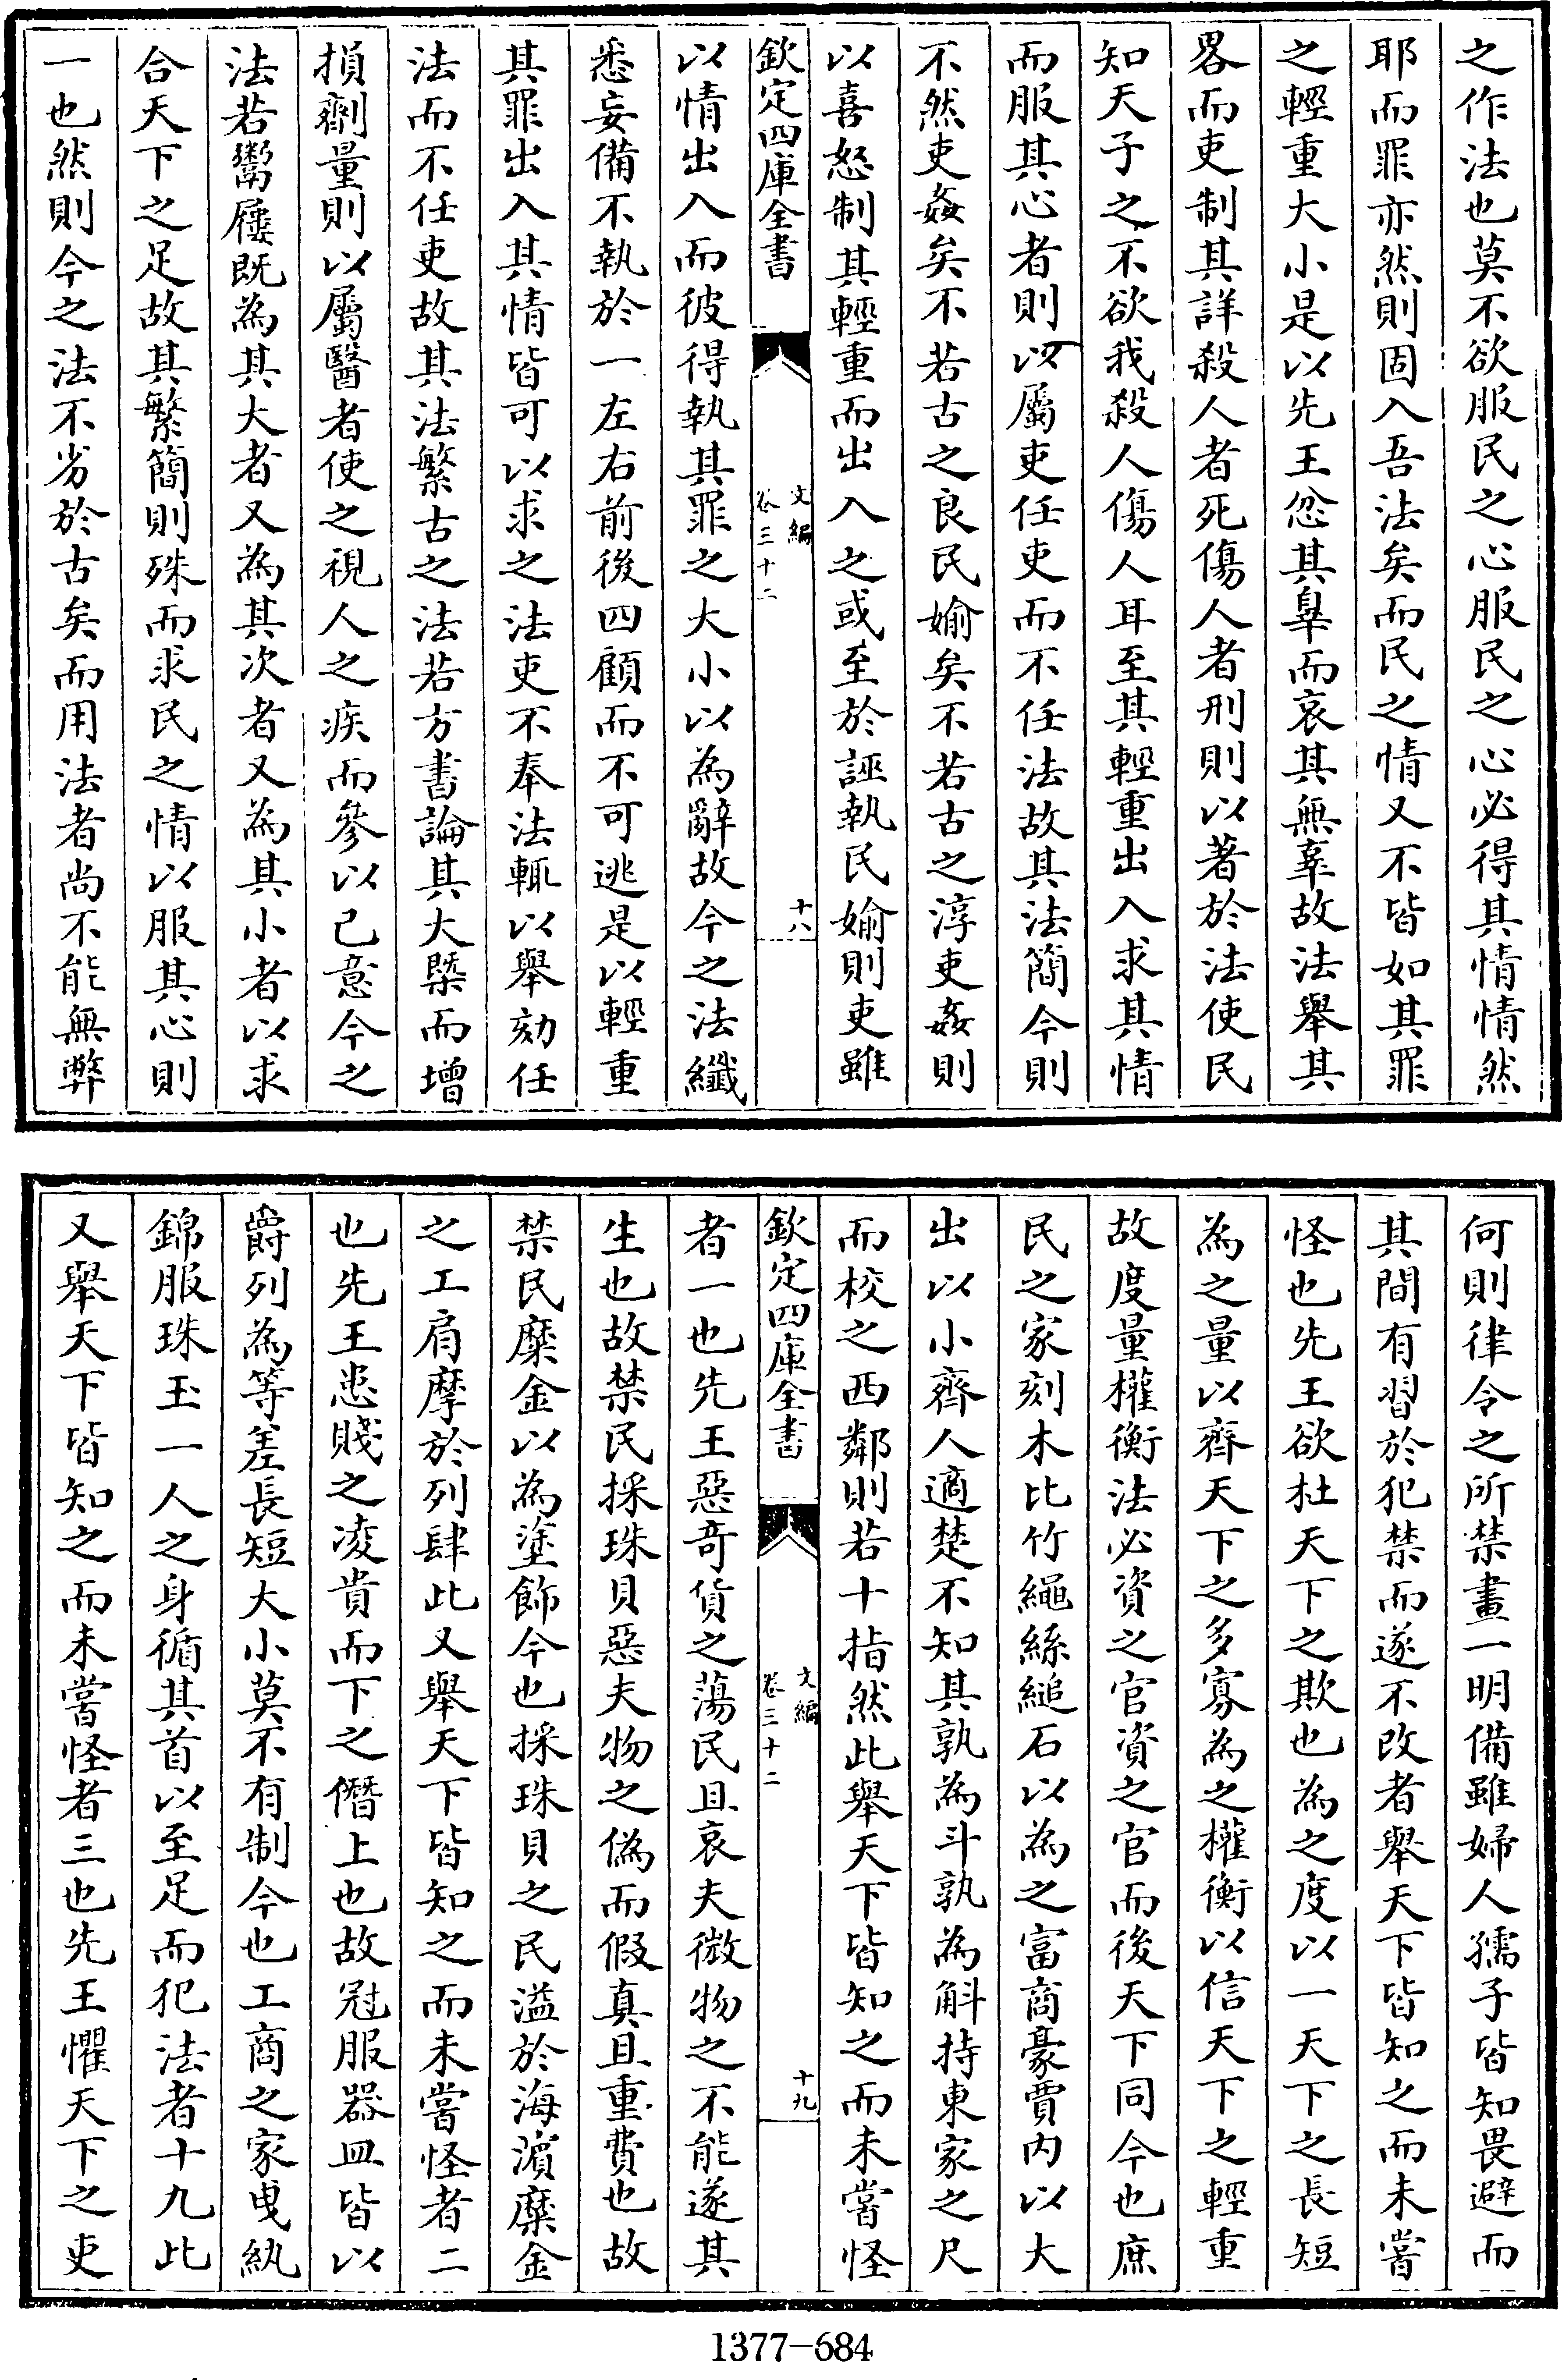 之作法也莫不欲服民之心服民之心必得其情情然
耶而罪亦然則固入吾法矣而民之情又不皆如其罪
之輕重大小是以先王忿其辠而哀其無辜故法舉其
畧而吏制其詳殺人者死傷人者刑則以著於法使民
知天子之不欲我殺人傷人耳至其輕重出入求其情
而服其心者則以屬吏任吏而不任法故其法簡今則
不然吏姦矣不若古之良民媮矣不若古之淳吏姦則
以喜怒制其輕重而出入之或至於誣執民媮則吏雖
欽定四庫全書
文編
卷三十二
十八
以情出入而彼得執其罪之大小以為辭故今之法纖
悉妄備不執於一左右前後四顧而不可逃是以輕重
其罪出入其情皆可以求之法吏不奉法輒以舉劾任
法而不任吏故其法繁古之法若方書論其大槩而增
損劑量則以屬醫者使之視人之疾而參以己意今之
法若鬻屨既為其大者又為其次者又為其小者以求
合天下之足故其繁簡則殊而求民之情以服其心則
一也然則今之法不劣於古矣而用法者尚不能無弊
何則律令之所禁畫一明備雖婦人孺子皆知畏避而
其間有習於犯禁而遂不改者舉天下皆知之而未嘗
怪也先王欲杜天下之欺也為之度以一天下之長短
為之量以齊天下之多寡為之權衡以信天下之輕重
故度量權衡法必資之官資之官而後天下同今也庶
民之家刻木比竹繩絲縋石以為之富商豪賈內以大
出以小齊人適楚不知其孰為斗孰為斛持東家之尺
而校之西鄰則若十指然此舉天下皆知之而未嘗怪
欽定四庫全書
文編
卷三十二
十九
者一也先王惡奇貨之蕩民且哀夫微物之不能遂其
生也故禁民採珠貝惡夫物之偽而假真且重費也故
禁民糜金以為塗飾今也採珠貝之民溢於海濱糜金
之工肩摩於列肆此又舉天下皆知之而未嘗怪者二
也先王患賤之凌貴而下之僭上也故冠服器皿皆以
爵列為等差長短大小莫不有制今也工商之家曳紈
錦服珠玉一人之身循其首以至足而犯法者十九此
又舉天下皆知之而未嘗怪者三也先王懼天下之吏
1377-684